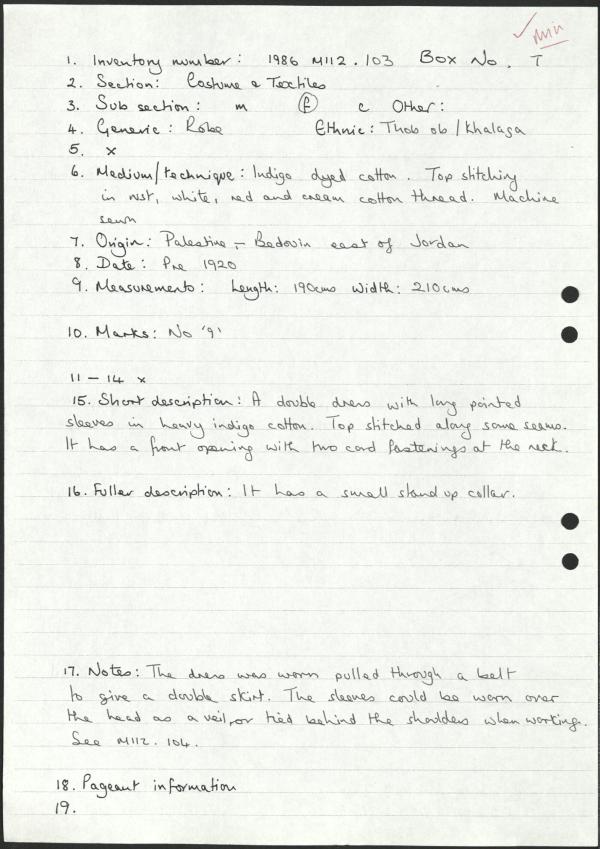 1. Inventory number: 1986 M112.103 Box No. T
2. Section: Costume & Textiles
3. Sub section: m f c Other:
4. Generic: Robe Ethnic: Thob ob / Khalaga
5. x
6. Medium/technique: Indigo dyed cotton. Top stitching
in rust, white, red and cream cotton thread. Machine
sewn
7. Origin: Palestine - Bedouin east of Jordan
8. Date: Pre 1920
9. Measurements: Length: 190cms Width: 210cms
10. Marks: No '9'
11 - 14 x
15. Short description: A double dress with long pointed
sleeves in heavy indigo cotton. Top stitched along some seams.
It has a front opening with two cord fastenings at the neck.
16. Fuller description: It has a small stand up collar.
17. Notes: The dress was worn pulled through a belt
to give a double skirt. The sleeves could be worn over
the head as a veil, or tied behind the shoulders when working.
See M112.104.
18. Pageant information
19.